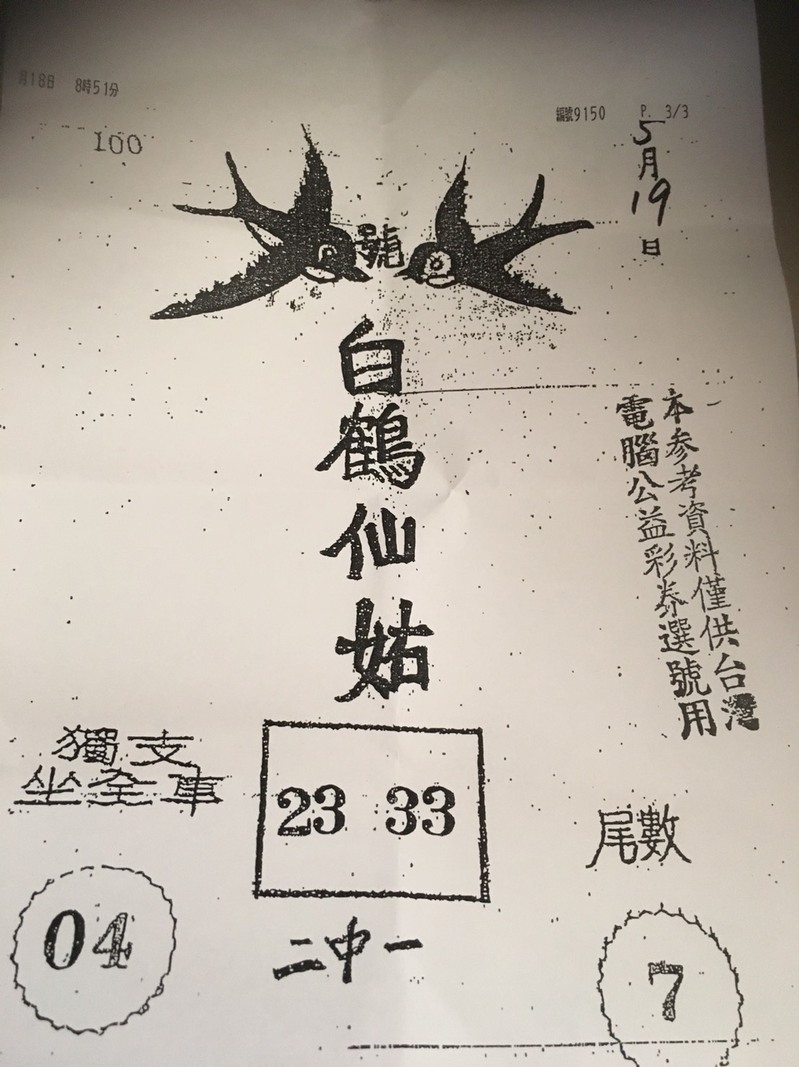 月18日 8時51分
編號9150 P. 3/3
100
5月19日
號
白鶴仙姑
本參考資料僅供台灣
電腦公益彩券選號用
獨支
坐全車
23 33
尾數
04
二中一
7